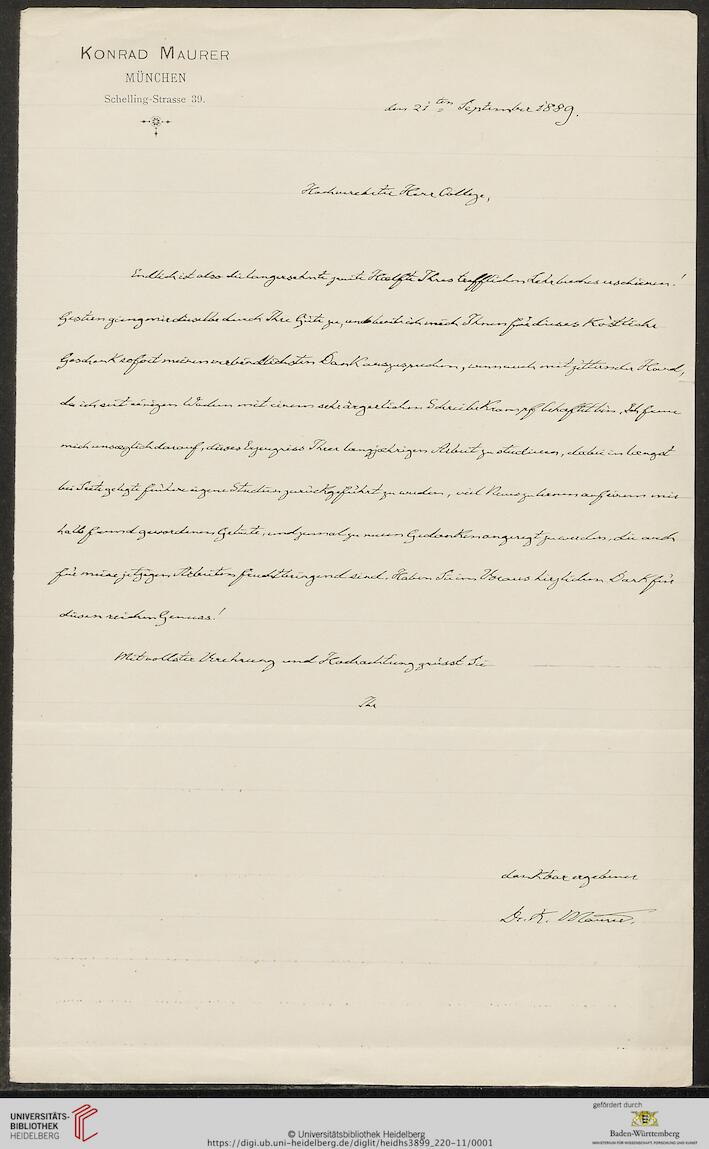 KONRAD MAURER
MÜNCHEN
Schelling-Strasse 39.
den 21ten September 1889.
Hochverehrter Herr College,
Endlich ist also die langersehnte zweite Hælfte Ihres trefflichen Lehrbuches erschienen!
Gestern gieng mir dieselbe durch Ihre Güte zu, und beeile ich mich Ihnen für dieses Köstliche
Geschenk sofort meinen verbindlichsten Dank auszusprechen, wenn auch mit zitternder Hand,
da ich seit einigen Wochen mit einem sehr ärgerlichen Schreibekrampf behaftet bin. Ich freue
mich unsæglich darauf, dieses Erzeugniss Ihrer langjæhrigen Arbeit zu studieren, dabei in længst
bei Seite gelegte frühere eigene Studien zurückgeführt zu werden, viel Neues zu lernen auf einem mir
halb fremd gewordenen Gebiete, und zumal zu neuen Gedanken angeregt zu werden, die auch
für meine jetzigen Arbeiten fruchtbringend sind. Haben Sie im Voraus herzlichen Dank für
diesen reichen Genuss!
Mit vollster Verehrung und Hochachtung grüsst Sie
Ihr
dankbar ergebener
Dr. K. Maurer.
UNIVERSITÄTS-
BIBLIOTHEK
HEIDELBERG
© Universitätsbibliothek Heidelberg
https://digi.ub.uni-heidelberg.de/diglit/heidhs3899_220-11/0001
gefördert durch
Baden-Württemberg
MINISTERIUM FÜR WISSENSCHAFT, FORSCHUNG UND KUNST